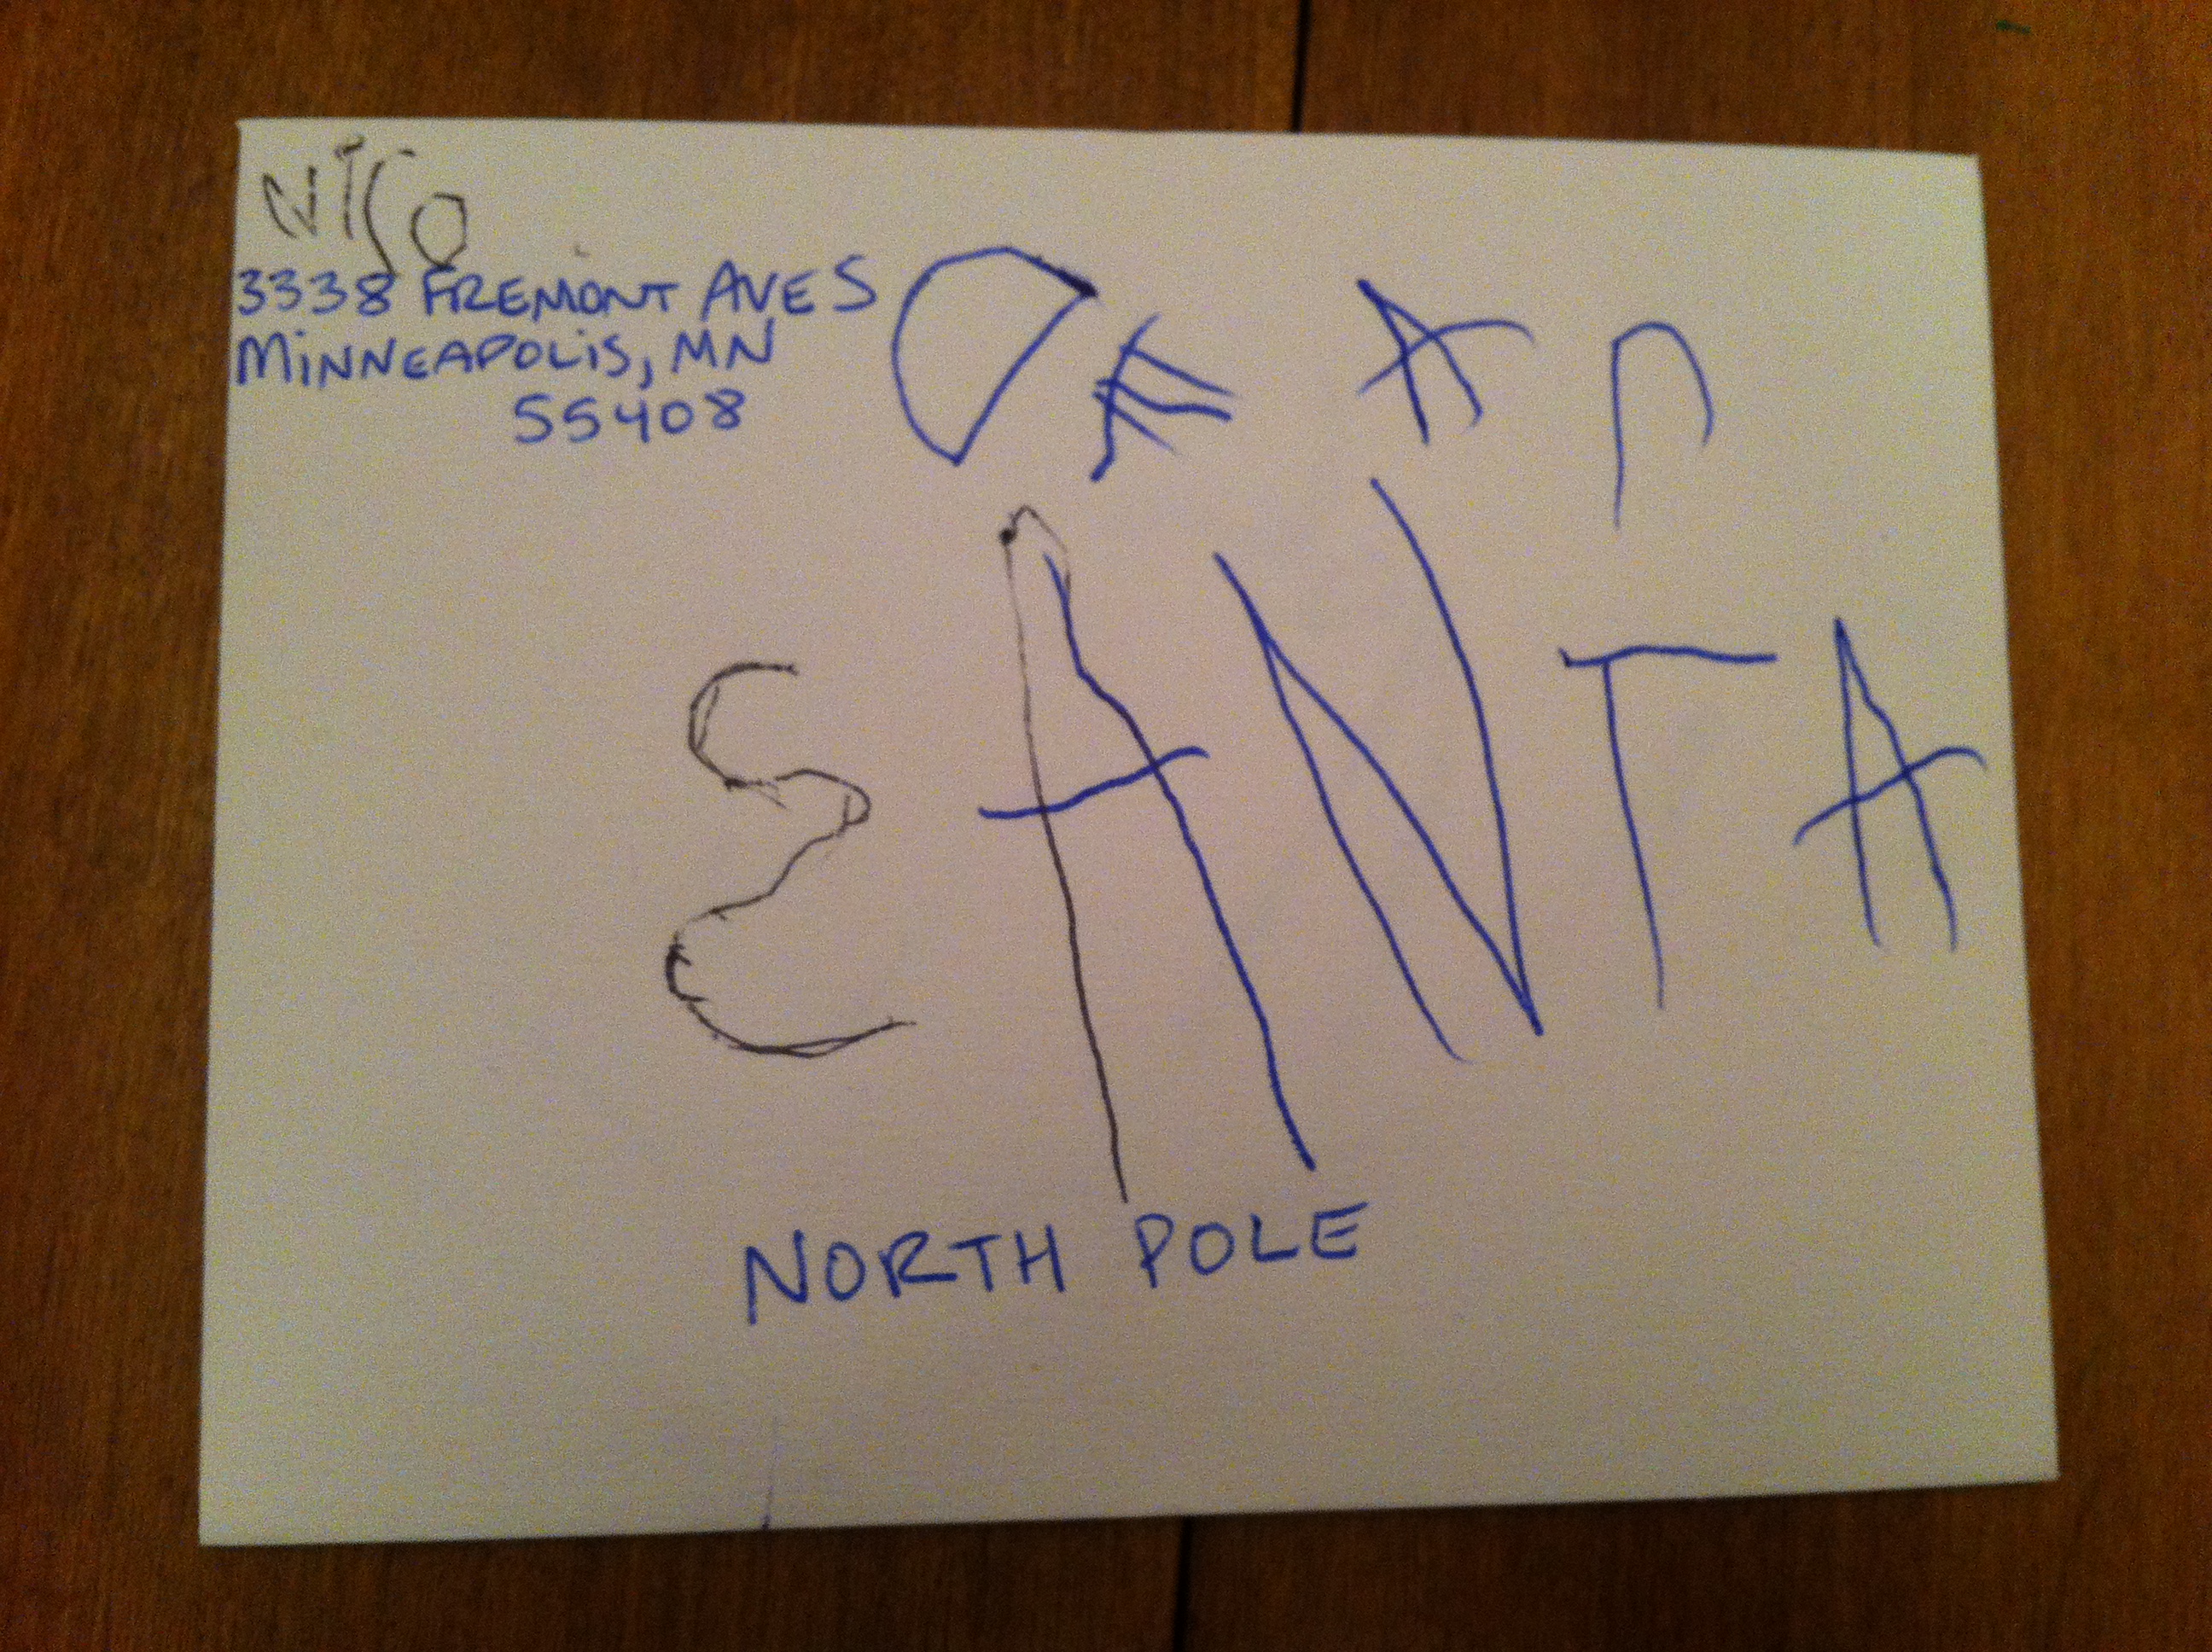 NICO
3338 FREMONT AVE S
MINNEAPOLIS, MN
55408
DEAR
SANTA
NORTH POLE